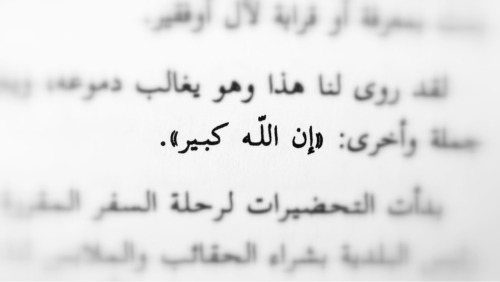 بمعرفة أو قرابة لآل أوفقير.
لقد روى لنا هذا وهو يغالب دموعه، وبين
جملة وأخرى: «إن اللّه كبير».
بدأت التحضيرات لرحلة السفر المقررة
البلدية بشراء الحقائب والملابس